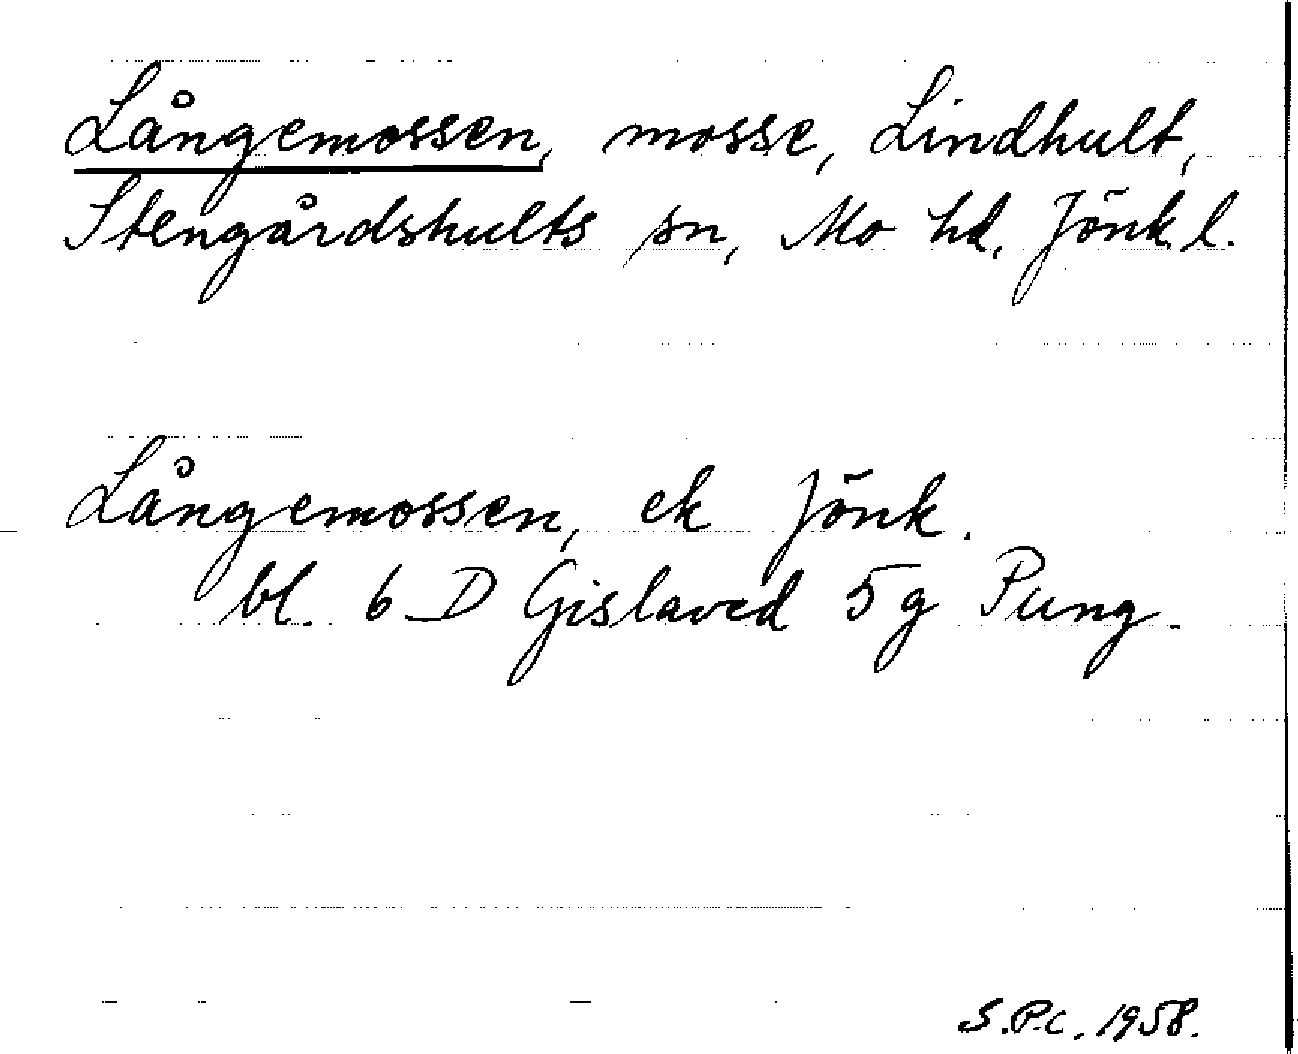 Långemossen, mosse, Lindhult,
Stengårdshults sn, Mo hd, Jönk. l.
Långemossen, ek Jönk.
bl. 6 D Gislaved 5g Pung.
S.P.C. 1958.